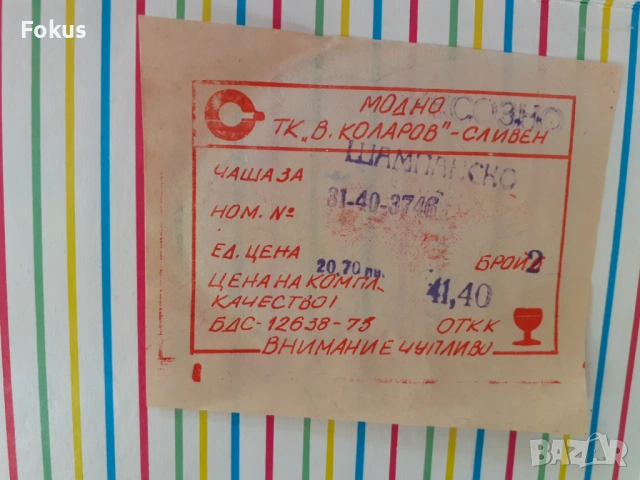 Fokus
МОДНО СОЗНО
ТК „В. КОЛАРОВ"-СЛИВЕН
ЧАША ЗА ШАМПАНСКО
НОМ. № 31-40-3746
ЕД. ЦЕНА 20,70 лв. БРОЙ 2
ЦЕНА НА КОМПЛ. 41,40
КАЧЕСТВО I
БДС-12638-75 ОТКК
ВНИМАНИЕ ЧУПЛИВО
BAZAR